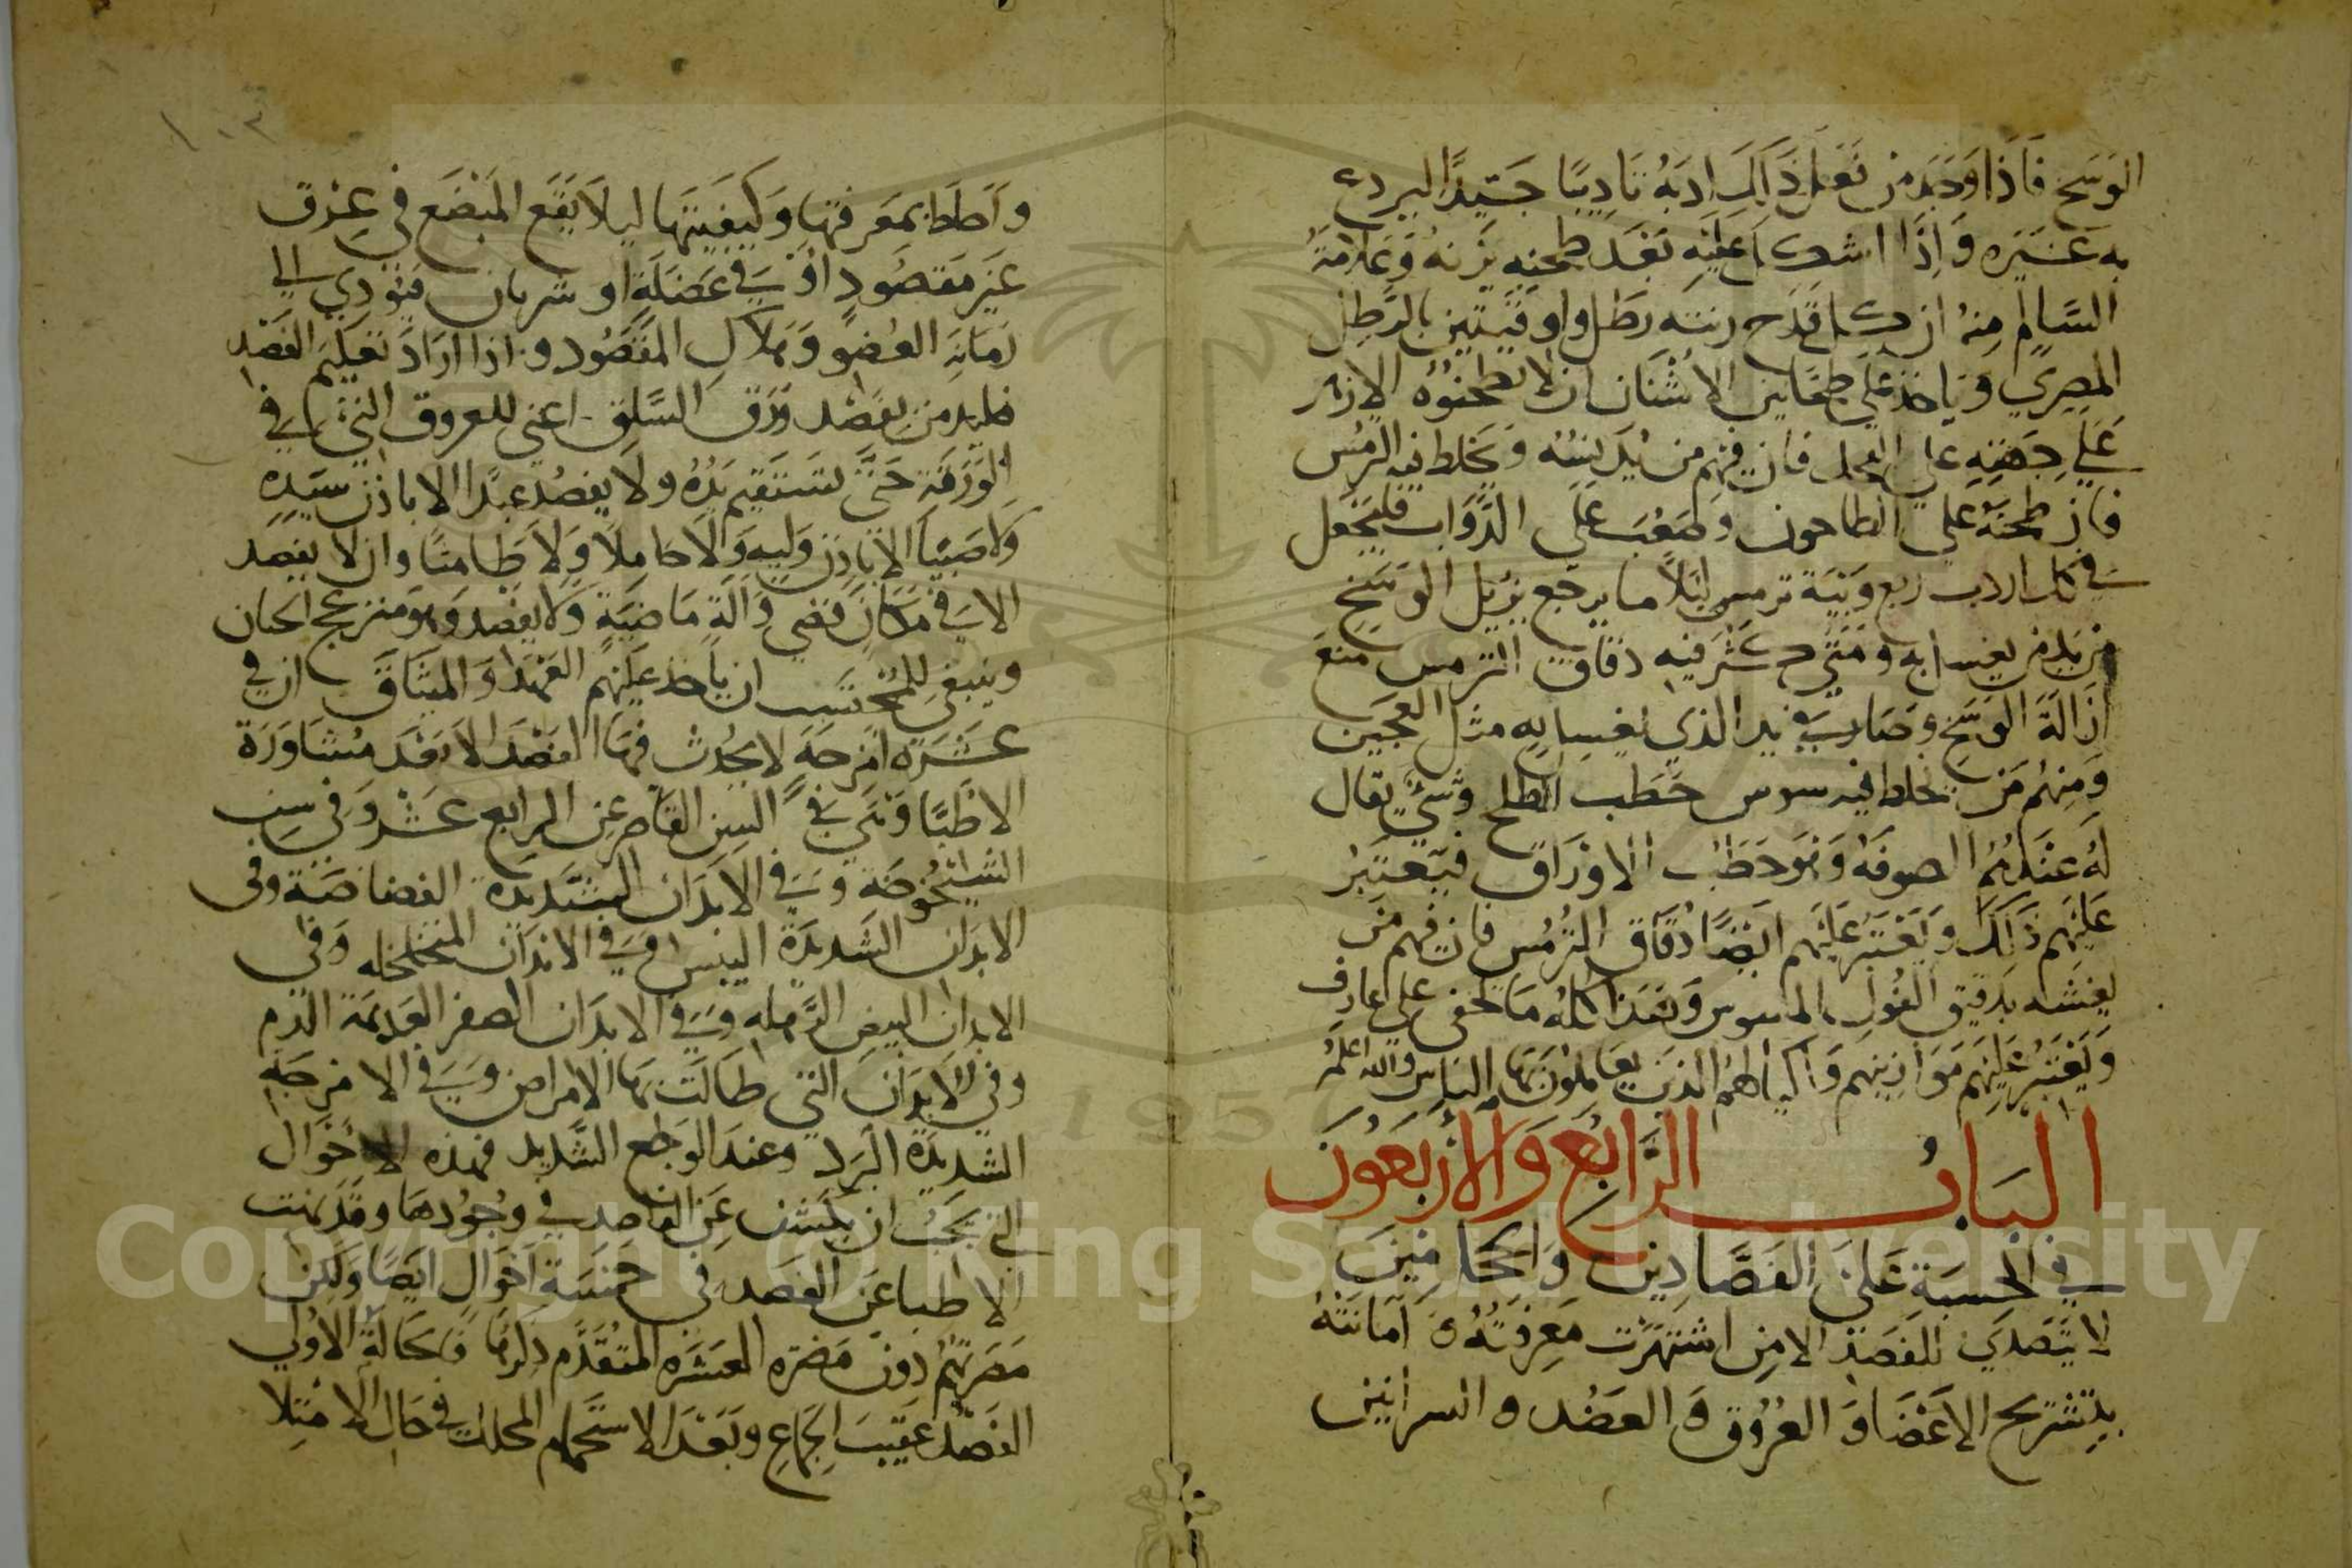 الوسخ فاذا وجد من فعل ذلك ادبه تاديبا جيدا ليردع
به غيره واذا اشكل عليه بعد طحنه يزنه وعلامة
السالم منه ان كل قدح زنته رطل واوقيتين بالرطل
المصري وياخذ علي طحانين الاشنان ان لا يطحنوه الا
علي جهته فان فيهم من يدلسه ويخلط فيه الترمس
فان طحنه علي الطاحون وصعب علي الدواب فليجعل
في كل اردب ربع ويبة ترمس ليلا ما يرجع يزيل الوسخ
من يد من يغسل به ومتي كثر فيه دقاق الترمس منع
ازالة الوسخ وصار في يد الذي يغسل به مثل العجين
ومنهم من يخلط فيه سوس حطب الطلح وشي يقال
له عندهم الصوفه وهو حطب الاوراق فيعتبر
عليهم ذلك ويعتبر عليهم ايضا دقاق الترمس فان فيهم من
يغشه بدقيق الفول المسوس وهذا كله ما يخفي علي عارف
ويعتبر عليهم موازينهم واكيالهم الذين يعاملون بها الناس والله اعلم
الباب الرابع والاربعون
في الحسبة على الفصادين والحجامين
لا يتصدي للفصد الا من اشتهرت معرفته وامانته
بتشريح الاعضا والعروق والعضد والشرايين
١٠٣
واحاط بمعرفتها وكيفيتها ليلا يقع المبضع في عرق
غير مقصود او في عضلة او شريان فيودي الي
زمانة العضو وهلاك المفصود واذا اراد تعليم الفصد
فليدمن بفصد ورق السلق اعني للعروق التي في
الورقة حتى تستقيم يده ولا يفصد عبدا الا باذن سيده
ولا صبيا الا باذن وليه ولا حاملا ولا طامثا وان لا يفصد
الا في مكان مضي وآلة ماضية ولا يفصد وهو منزعج الجنان
وينبغي للمحتسب ان ياخذ عليهم العهد والميثاق ان في
عشرة امزجة لا يحدث فيها الفصد الا بعد مشاورة
الاطبا وهي في السن القاصر عن الرابع عشر وفي سن
الشيخوخة وفي الابدان الشديدة القضاضة وفي
الابدان الشديدة اليبس وفي الابدان المتخلخله وفي
الابدان البيض الرهله وفي الابدان الصفر العديمة الدم
وفي الابدان التي طالت بها الامراض وفي الامزجة
الشديدة البرد وعند الوجع الشديد فهذه الاحوال
التي يجب ان يكشف عن الفاصد في وجودها وقد نهت
الاطبا عن الفصد في خمسة احوال ايضا ولكن
مضرتهم دون مضرة العشرة المتقدم ذكرها فالحالة الاولي
الفصد عقيب الجماع وبعد الاستحمام المحلل في حال الامتلا